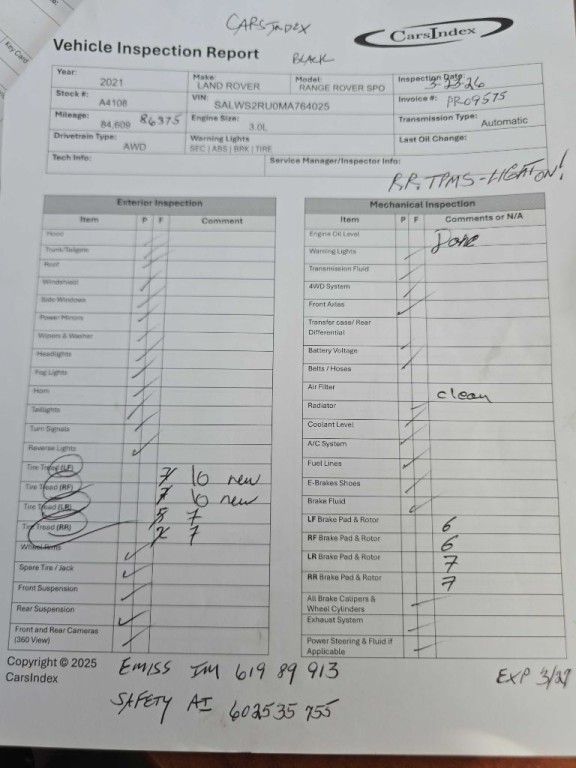 Key Card
CARSINDEX
CarsIndex
Vehicle Inspection Report
BLACK
Year: 2021 Make: LAND ROVER Model: RANGE ROVER SPO Inspection Date: 3-23-26
Stock #: A4108 VIN: SALWS2RU0MA764025 Invoice #: PR09575
Mileage: 84,609 86375 Engine Size: 3.0L Transmission Type: Automatic
Drivetrain Type: AWD Warning Lights SEC | ABS | BRK | TIRE Last Oil Change:
Tech Info: Service Manager/Inspector Info:
R.R. TPMS-LIGHT ON!
Exterior Inspection
Item P F Comment
Hood ✓
Trunk/Tailgate ✓
Roof ✓
Windshield ✓
Side Windows ✓
Power Mirrors ✓
Wipers & Washer ✓
Headlights ✓
Fog Lights ✓
Horn ✓
Taillights ✓
Turn Signals ✓
Reverse Lights ✓
Tire Tread (LF) 10 new
Tire Tread (RF) 10 new
Tire Tread (LR) 7
Tire Tread (RR) 7
Wheel Rims ✓
Spare Tire / Jack ✓
Front Suspension ✓
Rear Suspension ✓
Front and Rear Cameras
(360 View) ✓
Mechanical Inspection
Item P F Comments or N/A
Engine Oil Level Done
Warning Lights ✓
Transmission Fluid ✓
4WD System ✓
Front Axles ✓
Transfer case/ Rear
Differential
Battery Voltage ✓
Belts / Hoses ✓
Air Filter clean
Radiator ✓
Coolant Level ✓
A/C System ✓
Fuel Lines ✓
E-Brakes Shoes ✓
Brake Fluid ✓
LF Brake Pad & Rotor 6
RF Brake Pad & Rotor 6
LR Brake Pad & Rotor 7
RR Brake Pad & Rotor 7
All Brake Calipers &
Wheel Cylinders ✓
Exhaust System ✓
Power Steering & Fluid if
Applicable ✓
Copyright © 2025
CarsIndex
EMISS IM 619 89 913
EXP 3/27
SAFETY AI 602535 755